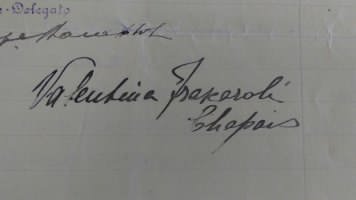 -Delegato
Valentina Frakaroli
Chapais